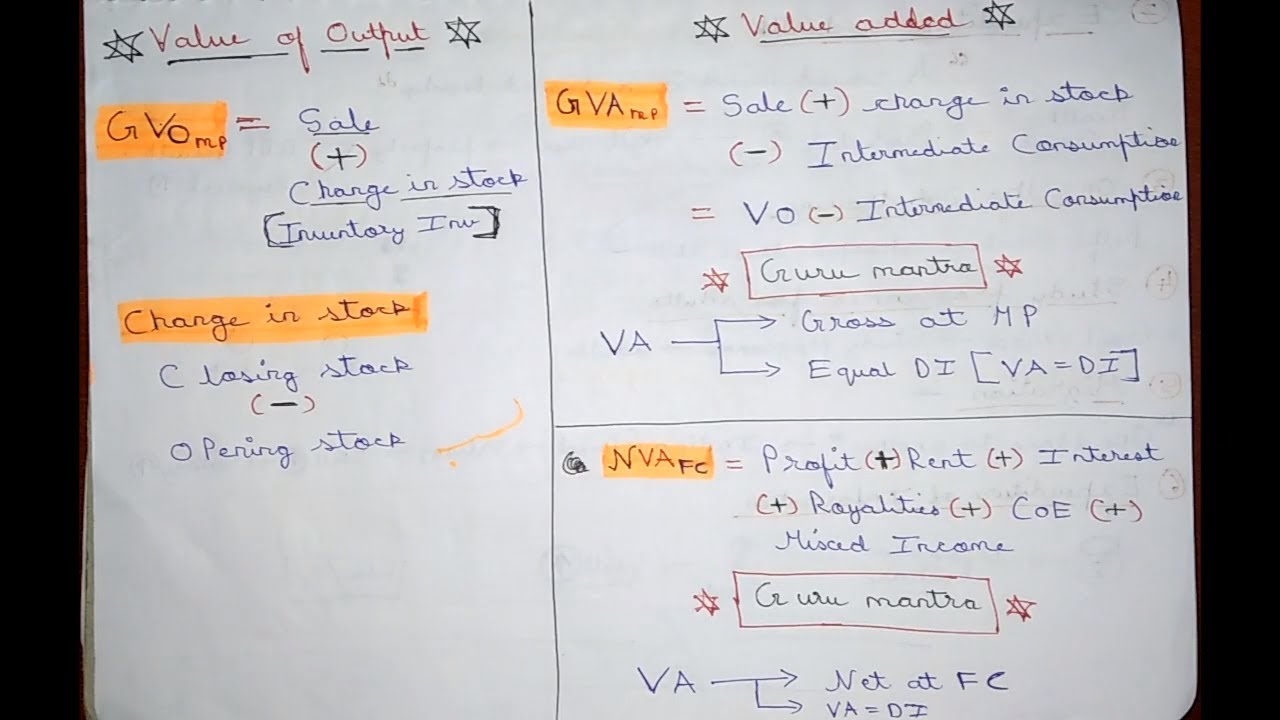 Value of Output
GVOmp = Sale
(+)
Change in stock
[Inventory Inv]
Change in stock
Closing stock
(-)
Opening stock
Value added
GVAmp = Sale (+) change in stock
(-) Intermediate Consumption
= VO (-) Intermediate Consumption
Guru mantra
VA → Gross at MP
→ Equal DI [VA = DI]
NVAFC = Profit (+) Rent (+) Interest
(+) Royalities (+) COE (+)
Mixed Income
Guru mantra
VA → Net at FC
→ VA = DI